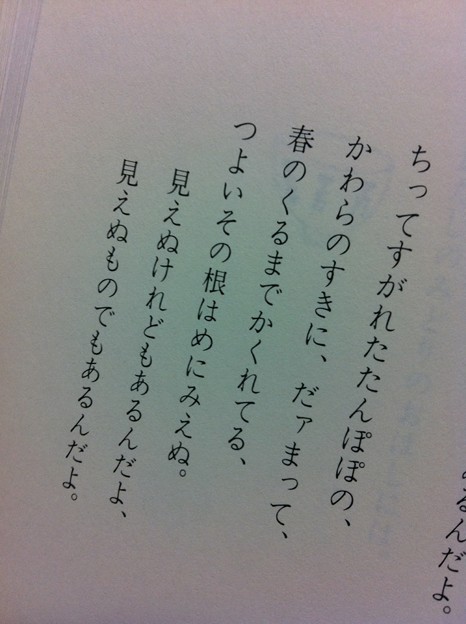 るんだよ。
ちってすがれたたんぽぽの、
かわらのすきに、だァまって、
春のくるまでかくれてる、
つよいその根はめにみえぬ。
見えぬけれどもあるんだよ、
見えぬものでもあるんだよ。